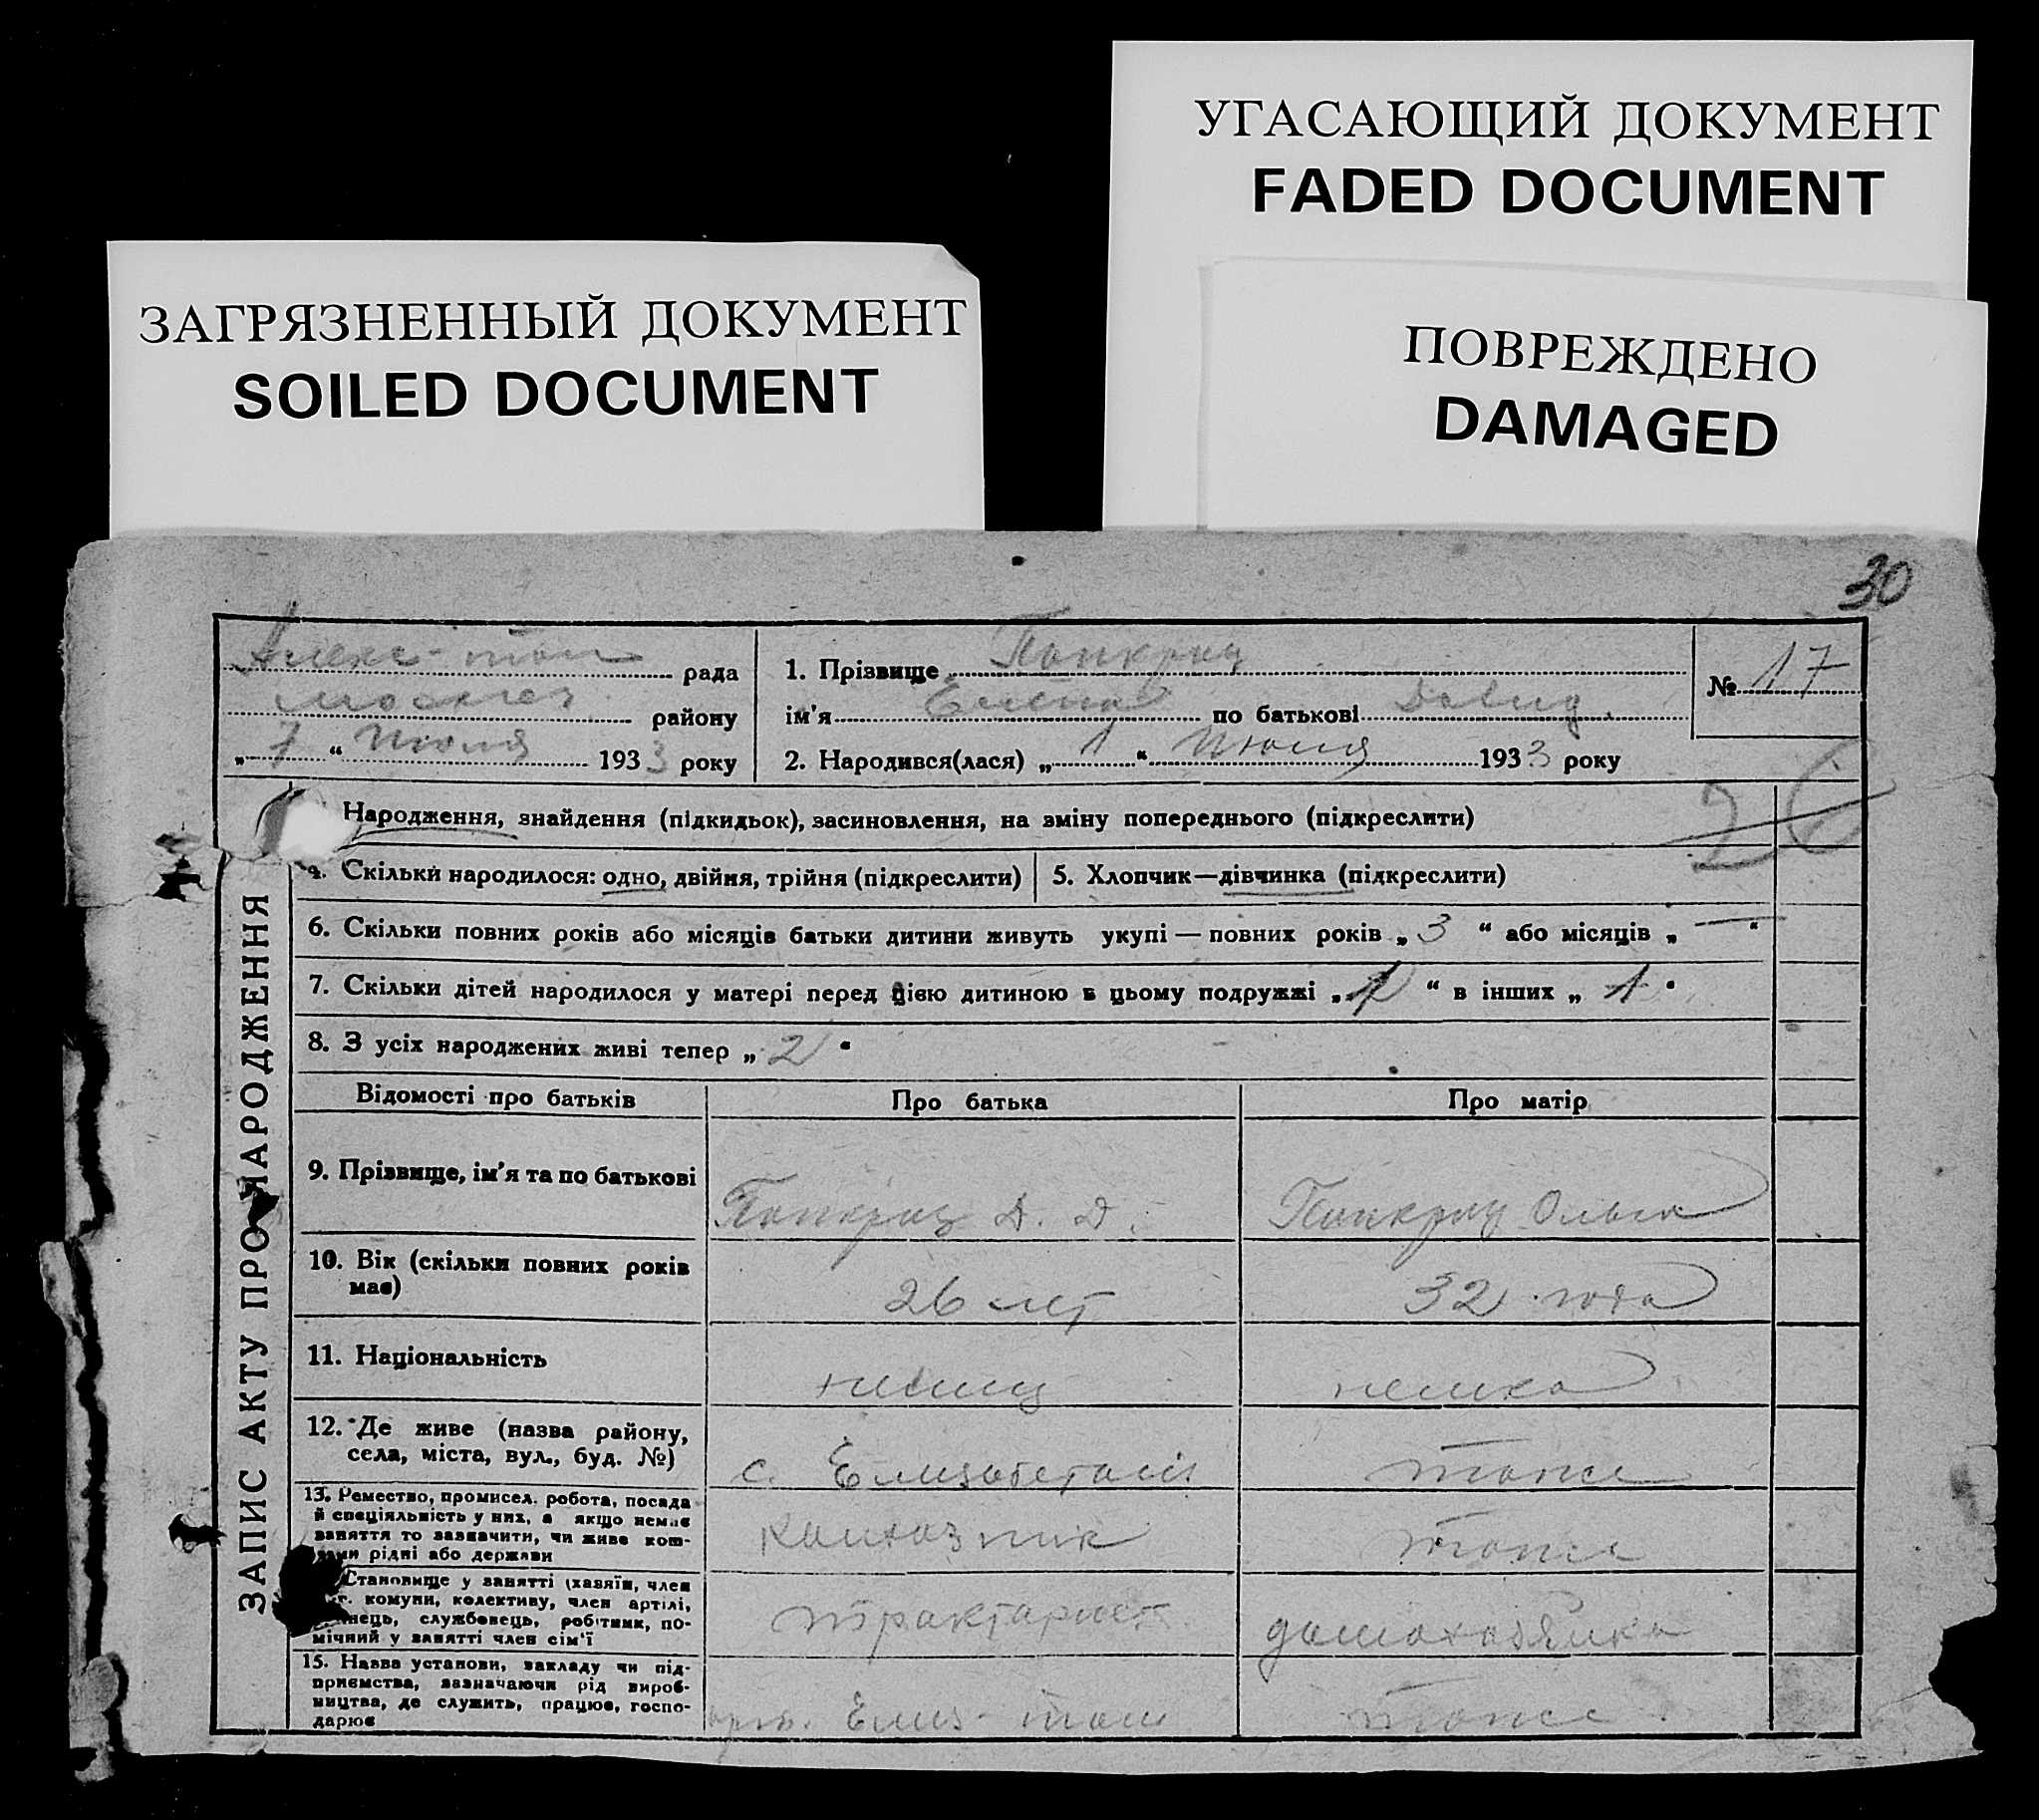 УГАСАЮЩИЙ ДОКУМЕНТ
FADED DOCUMENT
ЗАГРЯЗНЕННЫЙ ДОКУМЕНТ
SOILED DOCUMENT
ПОВРЕЖДЕНО
DAMAGED
30
рада
району
„ 7 “ Июля 1933 року
1. Прізвище Панкрац
ім'я Елена по батькові Давид.
2. Народився(лася) „ 1 “ Июля 1933 року
№ 17
ЗАПИС АКТУ ПРО НАРОДЖЕННЯ
Народження, знайдення (підкидьок), засиновлення, на зміну попереднього (підкреслити)
4. Скільки народилося: одно, двійня, трійня (підкреслити)
5. Хлопчик—дівчинка (підкреслити)
6. Скільки повних років або місяців батьки дитини живуть укупі — повних років „ 3 “ або місяців „ — “
7. Скільки дітей народилося у матері перед цією дитиною в цьому подружжі „ 1 “ в інших „ 1 “
8. З усіх народжених живі тепер „ 2 “
Відомості про батьків Про батька Про матір
9. Прізвище, ім'я та по батькові Панкрац Д. Д. Панкрац Ольга
10. Вік (скільки повних років
має) 26 лет 32 года
11. Національність немец немка
12. Де живе (назва району,
села, міста, вул., буд. №) с. Елизабетталь тоже
13. Ремество, промисел. робота, посада
й спеціяльність у них, а якщо немає
заняття то зазначити, чи живе кош-
тами рідні або держави колхозник тоже
Становище у занятті (хазяїн, член
с.-г. комуни, колективу, член артілі,
службовець, робітник, по-
мічний у занятті член сім'ї тракторист домохозяйка
15. Назва установи, закладу чи під-
приємства, зазначаючи рід вироб-
ництва, де служить, працює, госпо-
дарює Елиз-таль тоже